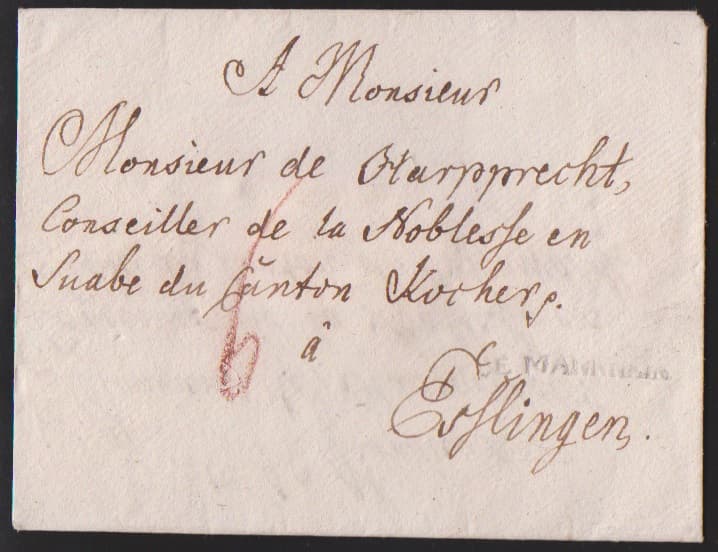 A Monsieur
Monsieur de Harpprecht,
Conseiller de la Noblesse en
Suabe du Canton Kocher p.
6
â
DE MANNHEIM
Esslingen,.